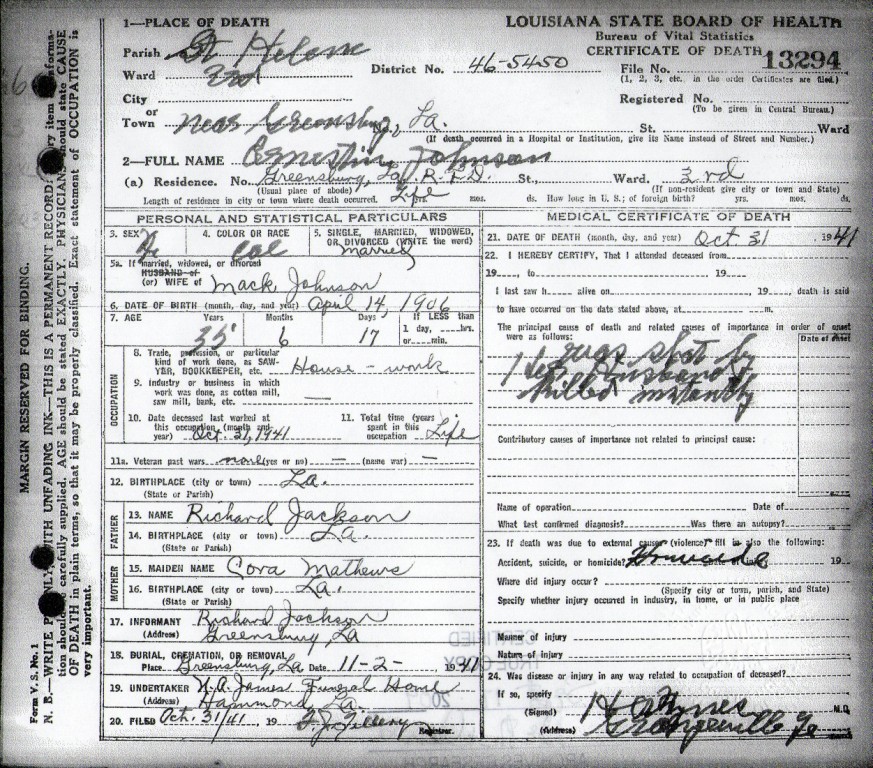 LOUISIANA STATE BOARD OF HEALTH
Bureau of Vital Statistics
CERTIFICATE OF DEATH
13294
1—PLACE OF DEATH
Parish St Helena
Ward 3rd
District No. 46-5450
File No.
(1, 2, 3, etc. in the order Certificates are filed.)
City
Registered No.
(To be given in Central Bureau.)
or
Town near Greensburg, La.
No. St. Ward
(If death occurred in a Hospital or Institution, give its Name instead of Street and Number.)
2—FULL NAME Johnson
(a) Residence. No. Greensburg, La. R.F.D. St., Ward. 3rd
(Usual place of abode) (If non-resident give city or town and State)
Length of residence in city or town where death occurred. Life yrs. mos. ds. How long in U. S.; of foreign birth? yrs. mos. ds.
PERSONAL AND STATISTICAL PARTICULARS
3. SEX
4. COLOR OR RACE Col
5. SINGLE, MARRIED, WIDOWED, OR DIVORCED (WRITE the word) married
5a. If married, widowed, or divorced
HUSBAND of
(or) WIFE of Mack Johnson
6. DATE OF BIRTH (month, day, and year) April 14, 1906
7. AGE Years 35 Months 6 Days 17 If LESS than 1 day, hrs. or min.
OCCUPATION
8. Trade, profession, or particular kind of work done, as SAWYER, BOOKKEEPER, etc. House-work
9. Industry or business in which work was done, as cotton mill, saw mill, bank, etc. —
10. Date deceased last worked at this occupation (month and year) Oct 31, 1941
11. Total time (years) spent in this occupation Life
11a. Veteran past wars none (yes or no) — (name war) —
12. BIRTHPLACE (city or town) La.
(State or Parish)
FATHER
13. NAME Richard Jackson
14. BIRTHPLACE (city or town) La.
(State or Parish)
MOTHER
15. MAIDEN NAME Cora Mathews
16. BIRTHPLACE (city or town) La.
(State or Parish)
17. INFORMANT Richard Jackson
(Address) Greensburg, La
18. BURIAL, CREMATION, OR REMOVAL
Place Greensburg, La Date 11-2- 1941
19. UNDERTAKER N.A. James Funeral Home
Hammond, La.
20. FILED Oct. 31/41, 19
Registrar.
MEDICAL CERTIFICATE OF DEATH
21. DATE OF DEATH (month, day, and year) Oct 31 1941
22. I HEREBY CERTIFY, That I attended deceased from
19, to 19
I last saw h alive on, 19, death is said
to have occurred on the date stated above, at m.
The principal cause of death and related causes of importance in order of onset were as follows:
Date of onset
was shot by
Her Husband &
Killed instantly
Contributory causes of importance not related to principal cause:
Name of operation Date of
What test confirmed diagnosis? Was there an autopsy?
23. If death was due to external causes (violence) fill in also the following:
Accident, suicide, or homicide? 19
Where did injury occur?
(Specify city or town, parish, and State)
Specify whether injury occurred in industry, in home, or in public place
Manner of injury
Nature of injury
24. Was disease or injury in any way related to occupation of deceased?
If so, specify
(Signed) M.D.
(Address)
MARGIN RESERVED FOR BINDING.
Form V. S. No. 1